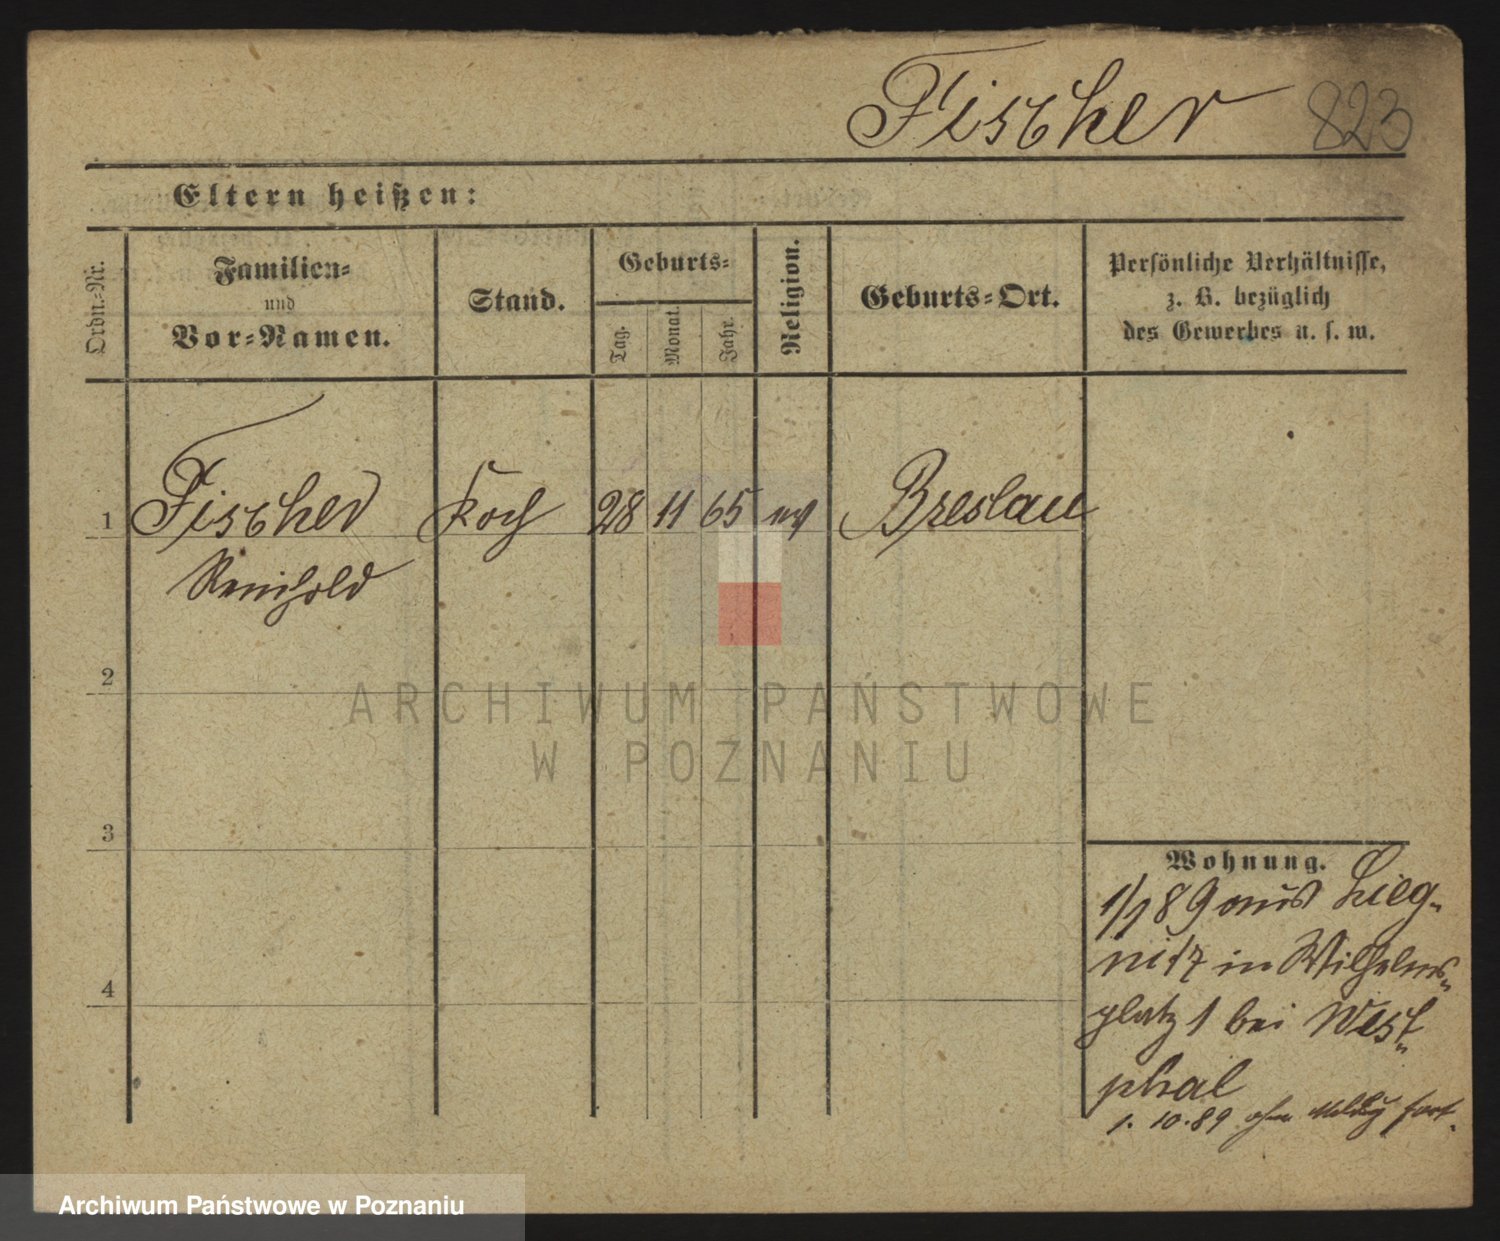 Fischer 823
Eltern heißen:
Ordn.=Nr.
Familien=
und
Vor=Namen.
Stand.
Geburts=
Tag.
Monat.
Jahr.
Religion.
Geburts=Ort.
Persönliche Verhältnisse,
z. B. bezüglich
des Gewerbes u. s. w.
1 Fischer Koch 28 11 65 ev Breslau
Reinhold
2
3
4
ARCHIWUM PAŃSTWOWE
W POZNANIU
Wohnung.
1/1 89 aus Lieg-
nitz in Wilhelms-
platz 1 bei West-
phal
1. 10. 89 ohne Meldg fort.
Archiwum Państwowe w Poznaniu